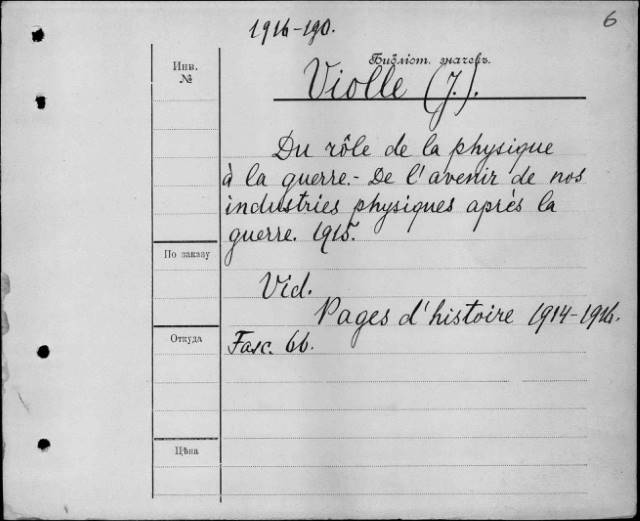 6
1916-190.
Инв.
№
Библіот. значекъ.
Violle (J.).
Du rôle de la physique
à la guerre.- De l'avenir de nos
industries physiques après la
guerre. 1915.
По заказу
Vid.
Pages d'histoire 1914-1916.
Откуда
Fasc. 66.
Цѣна